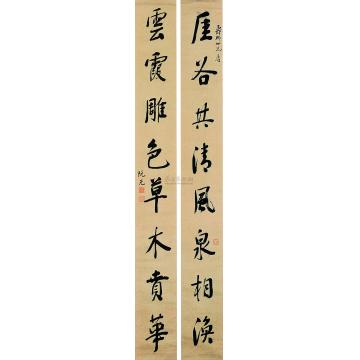 崖谷共清風泉相渙
雲霞雕色草木賁華
阮元